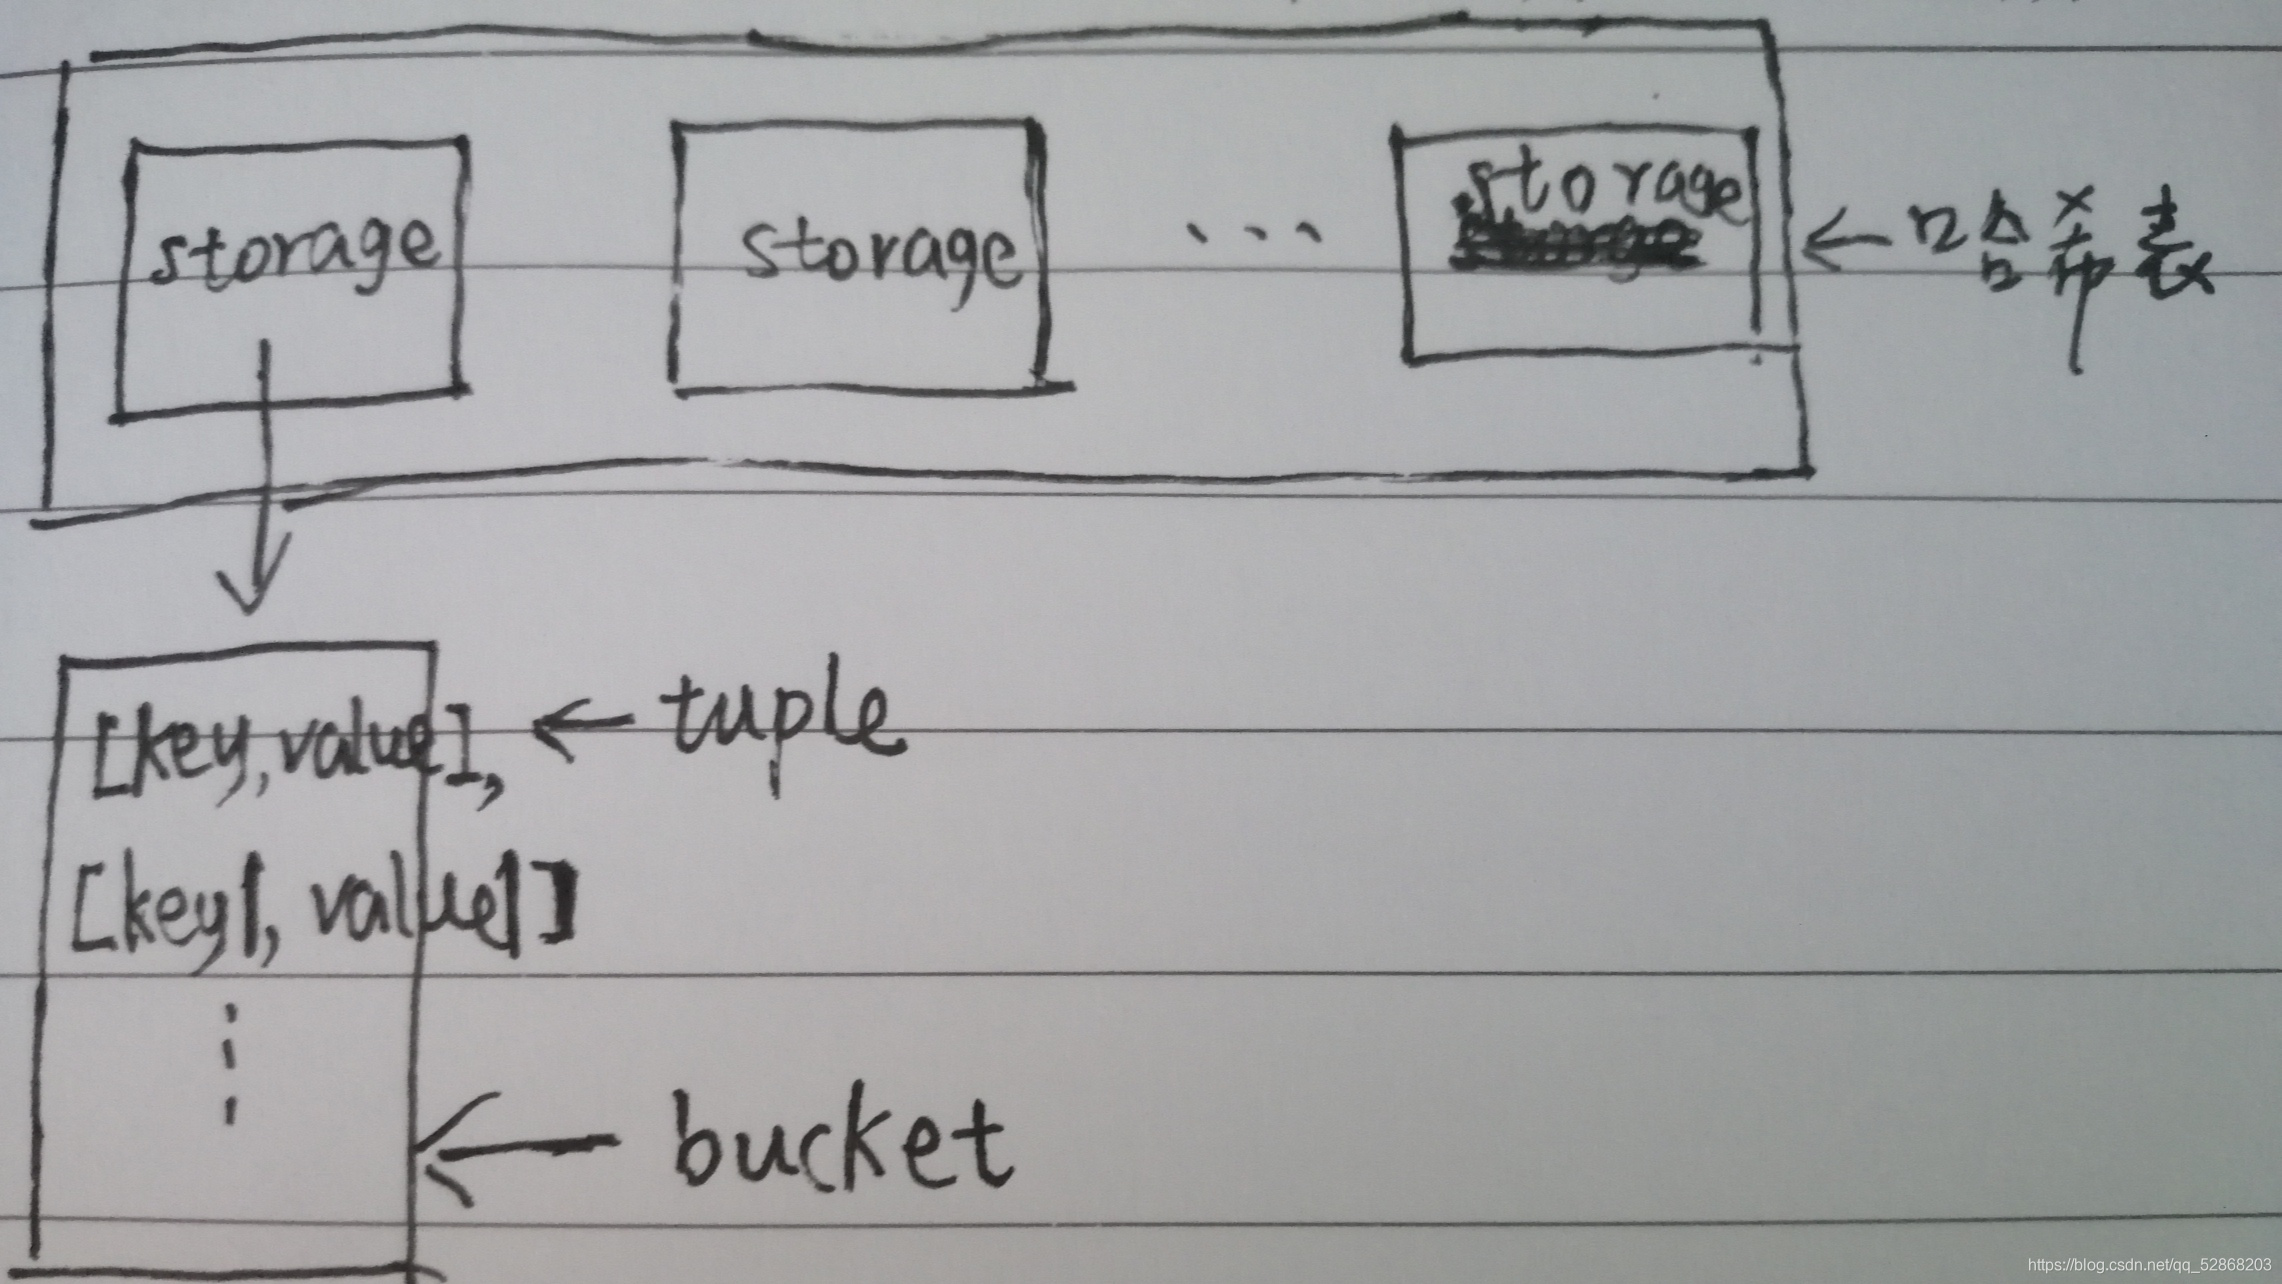 storage
storage
...
storage
哈希表
[key,value],
tuple
[key1, value1]
bucket
https://blog.csdn.net/qq_52868203